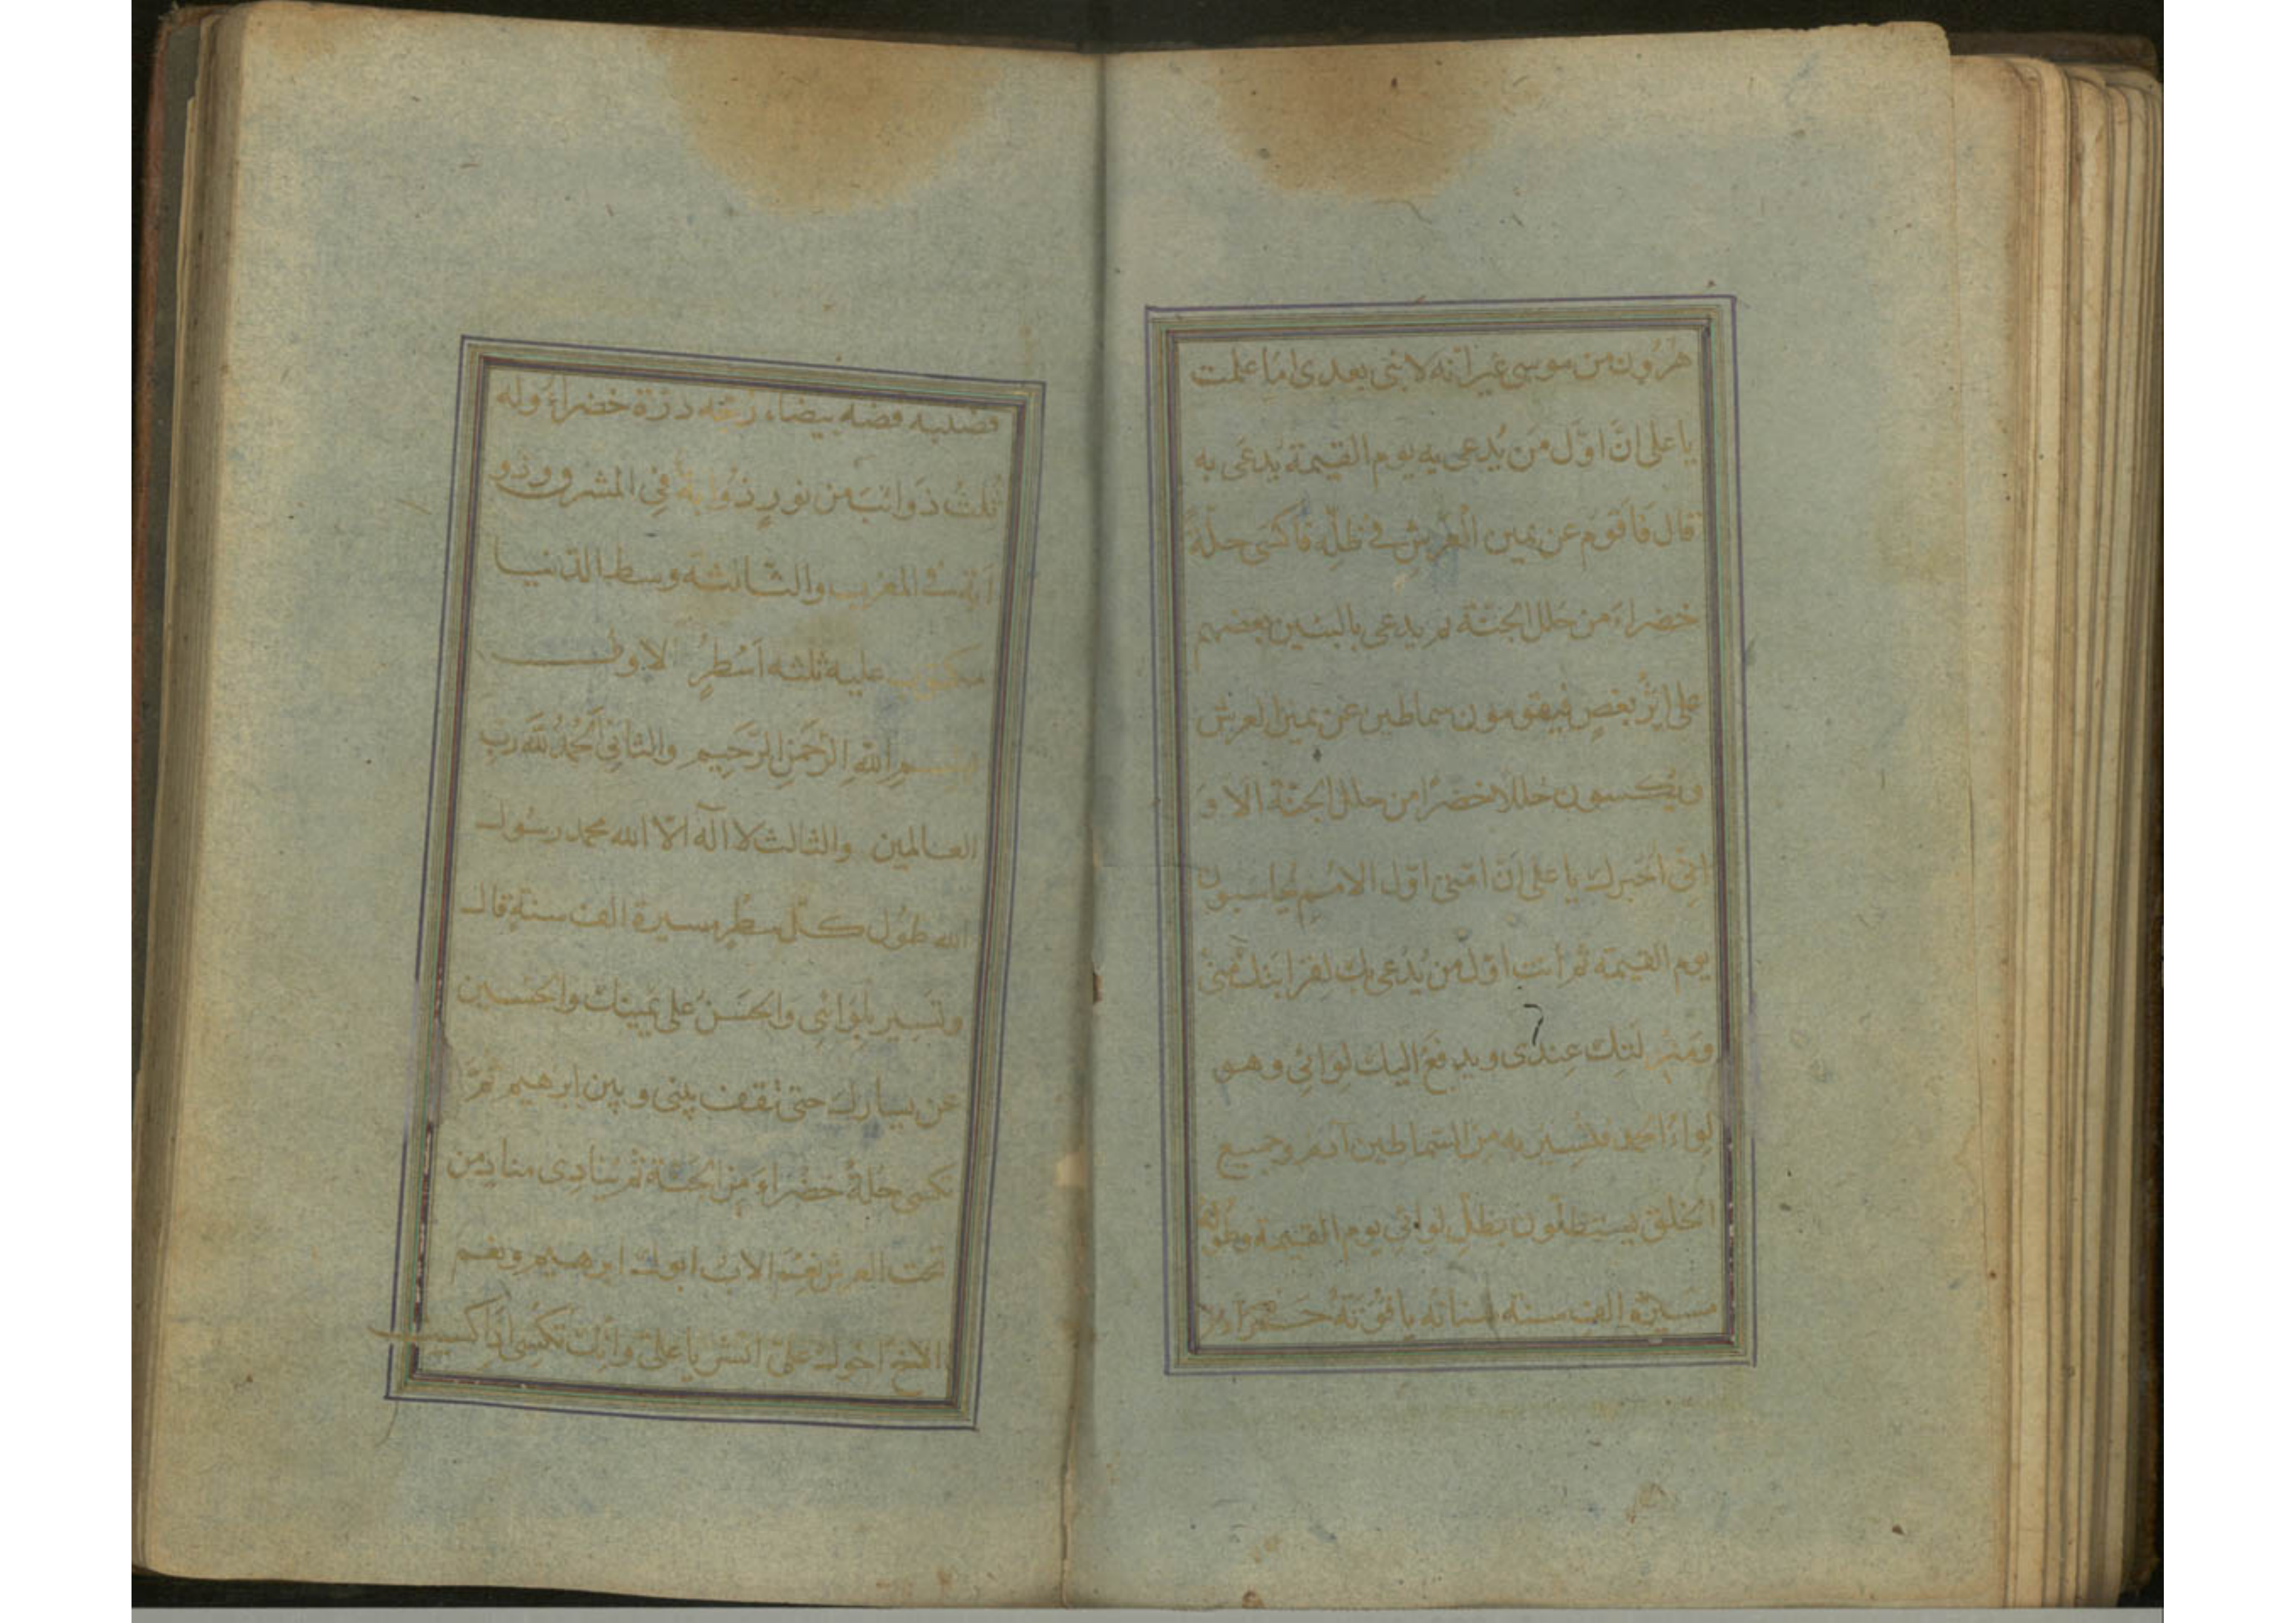 هرون من موسى غير انه لا نبى بعدى اما علمت
يا على انَّ اوَّل من يُدعى به يوم القيمة يدعى به
قال فاقوم عن يمين العرش فى ظلّه فاكسى حلّة
خضراء من حلل الجنّة ثم يدعى بالنبيين بعضهم
على اثر بعضٍ فيقومون سماطين عن يمين العرش
ويكسون حللا خضرًا من حلل الجنّة الا و
انّى اخبرك يا على انّ امّتى اوّل الامم يحاسبون
يوم القيمة ثم انت اوّل من يُدعى بك لقرابتك منّى
ومنزلتك عندى ويدفع اليك لوائى وهو
لواء الحمد فتسير به من السماطين آدم وجميع
الخلق يستظلّون بظلّ لوائى يوم القيمة وطوله
مسيرة الف سنة سنانه ياقوتة حمراء
قضبيه فضه بيضاء زجّه درّة خضراء وله
ثلث ذوائب من نورٍ ذوابة فى المشرق وذو
ابة فى المغرب والثالثة وسط الدنيا
مكتوب عليه ثلثه اَسْطُرٍ الاول
بسم اللهِ الرّحمنِ الرّحيم والثانى الحمدُ للّه ربّ
العالمين والثالث لا اله الّا الله محمد رسول
الله طول كلّ سطرٍ مسيرة الف سنةٍ قال
وتسير بلوائى والحسنُ على يمينك والحسين
عن يسارك حتى تقف بينى وبين ابرهيم ثمّ
تكسى حلّة خضراء من الجنّة ثم ينادى منادٍ من
تحت العرش نعم الاب ابوك ابرهيم ونعم
الاخ اخوك علىّ ابشر يا علىّ وانّك تكسى اذا كسيت